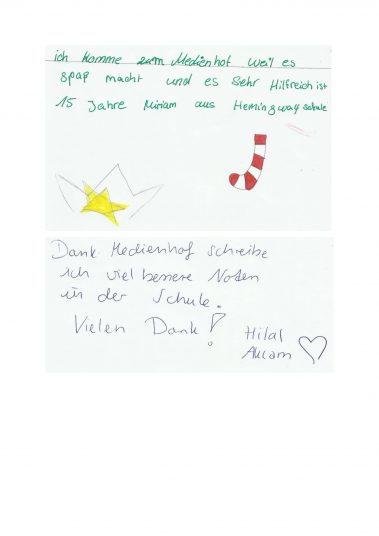 ich komme zum Medienhof weil es
spaß macht und es Sehr Hilfreich ist
15 Jahre Miriam aus Hemingway schule
Dank Medienhof schreibe
ich viel bessere Noten
in der Schule.
Vielen Dank!
Hilal